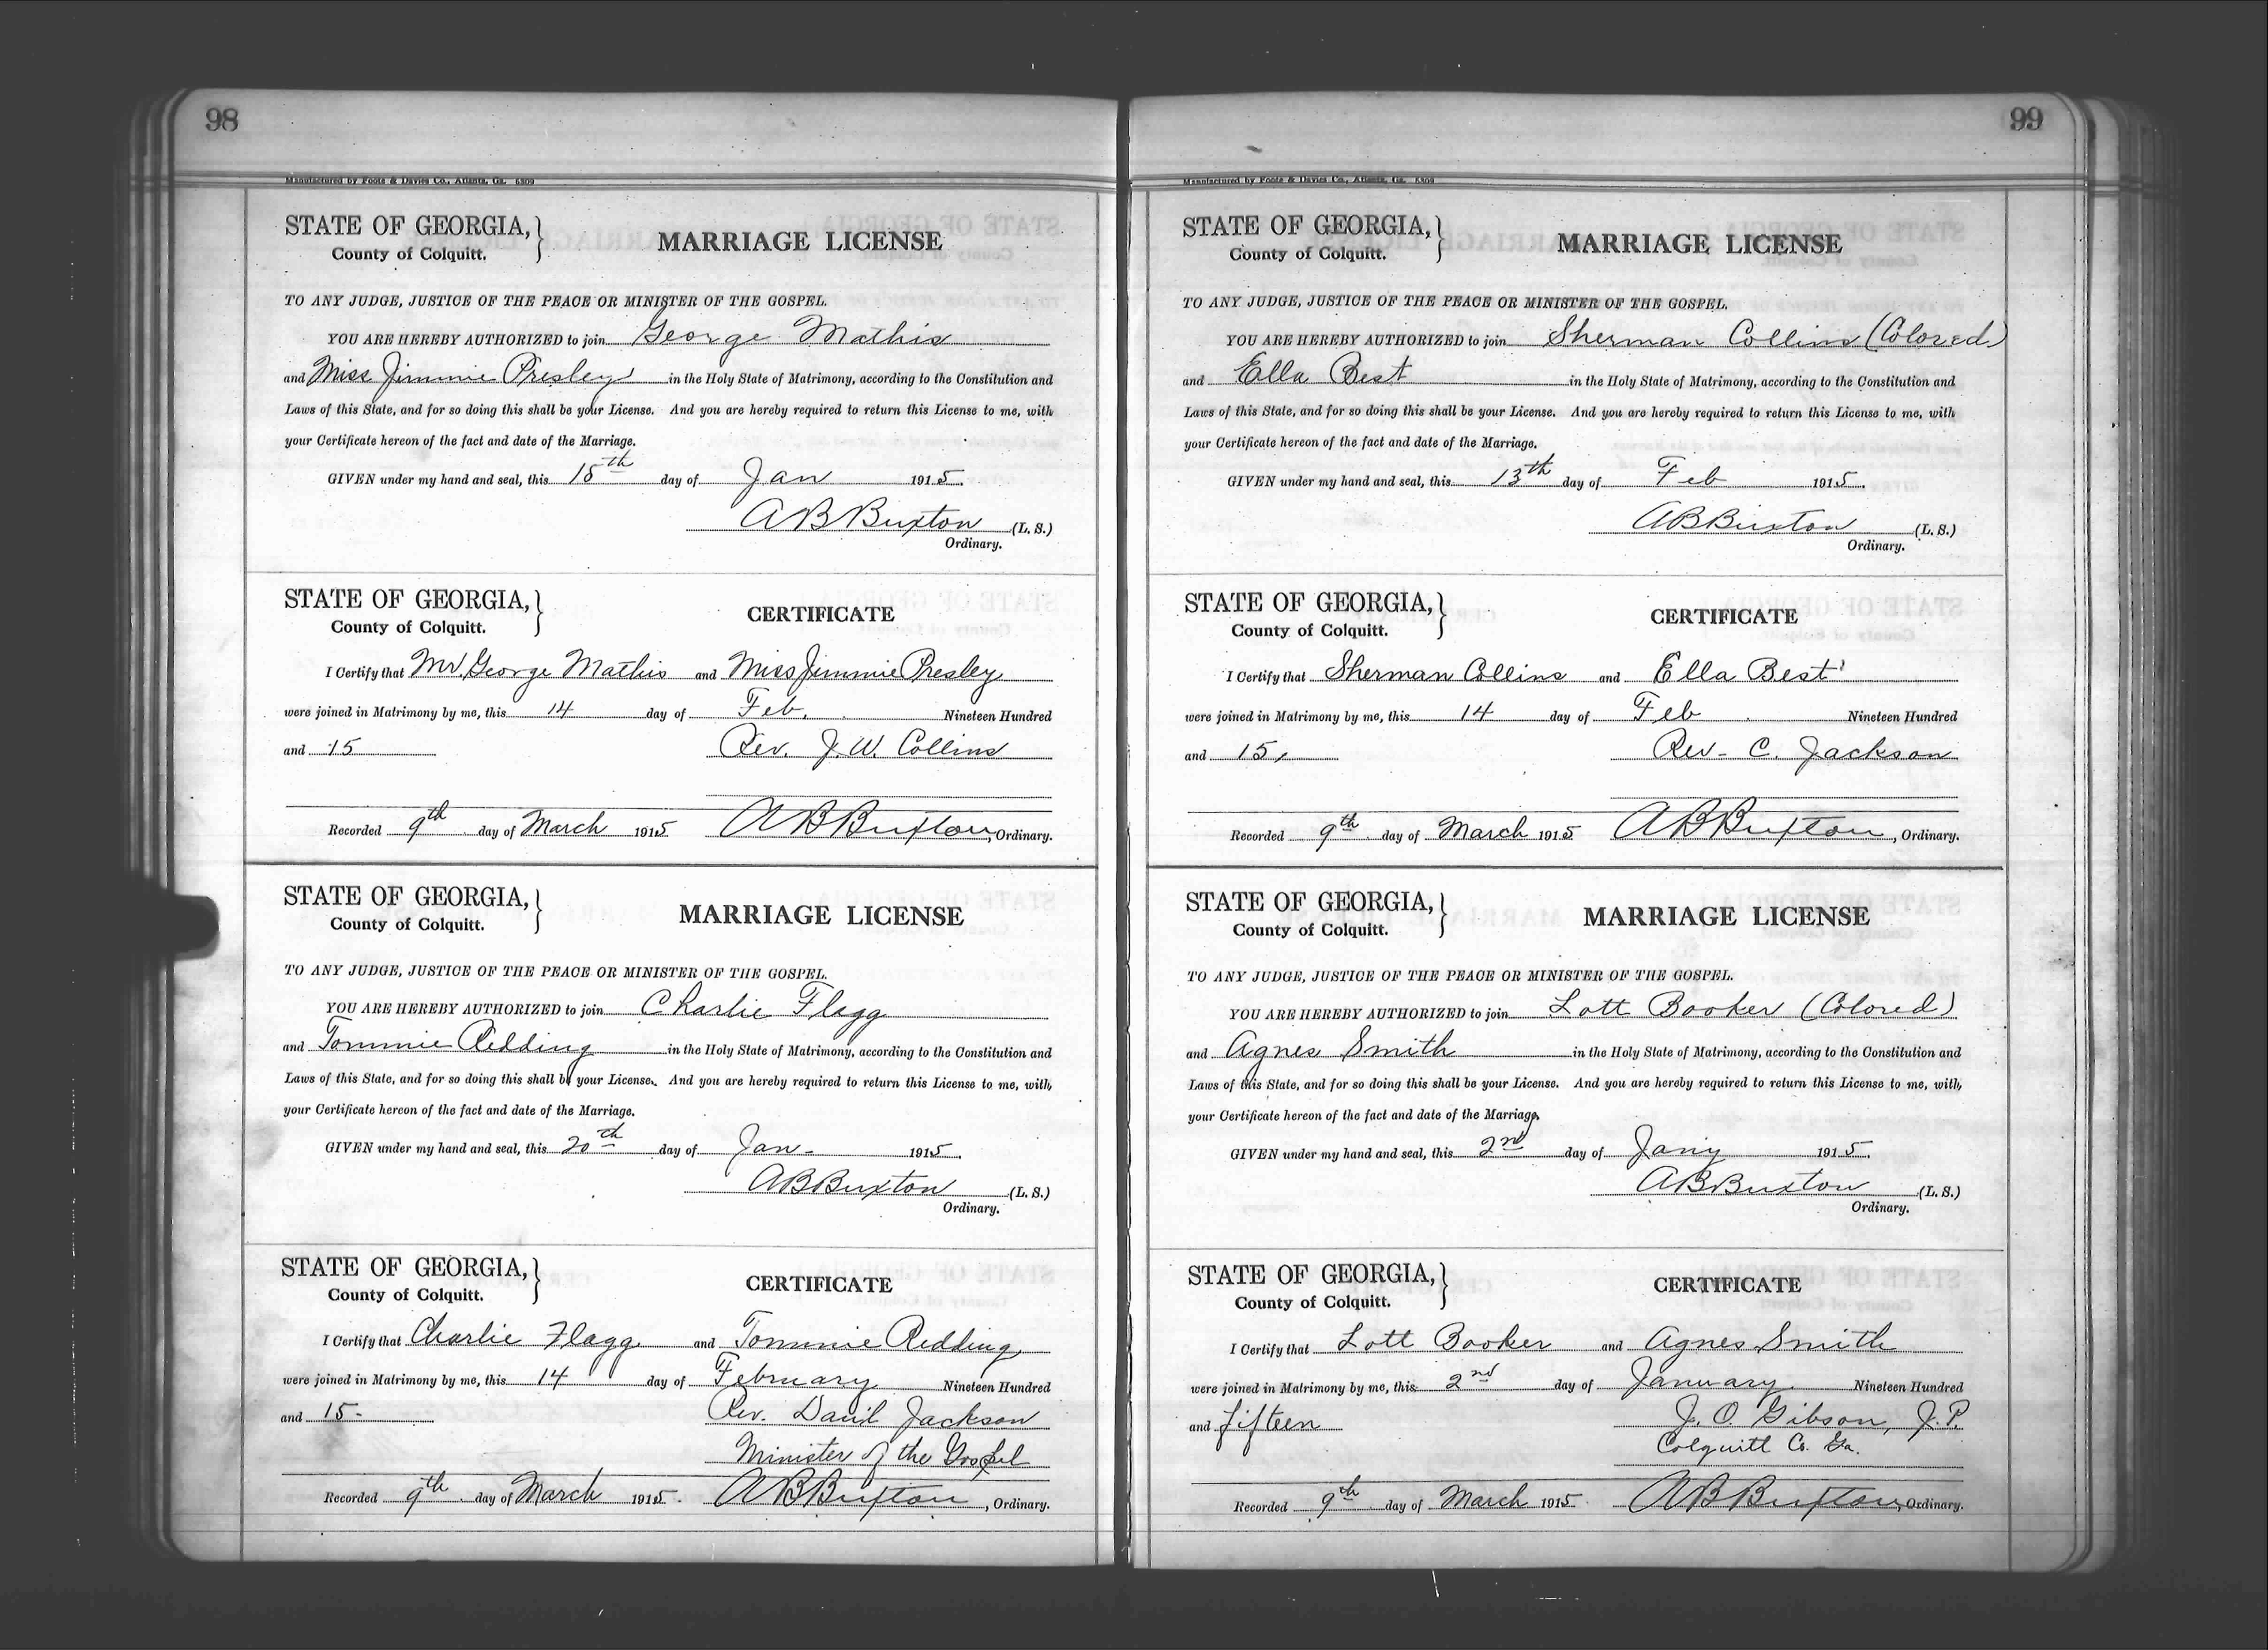 98
Manufactured by Foote & Davies Co., Atlanta, Ga. 6309
STATE OF GEORGIA,
County of Colquitt.
MARRIAGE LICENSE
TO ANY JUDGE, JUSTICE OF THE PEACE OR MINISTER OF THE GOSPEL.
YOU ARE HEREBY AUTHORIZED to join George Mathis
and Miss Jimmie Presley in the Holy State of Matrimony, according to the Constitution and
Laws of this State, and for so doing this shall be your License. And you are hereby required to return this License to me, with
your Certificate hereon of the fact and date of the Marriage.
GIVEN under my hand and seal, this day of Jan 1915.
A B Buxton (L. S.)
Ordinary.
STATE OF GEORGIA,
County of Colquitt.
CERTIFICATE
I Certify that Mr. George Mathis and Miss Jimmie Presley
were joined in Matrimony by me, this 14 day of Feb. Nineteen Hundred
and 15
Rev. J. W. Collins
Recorded 9th day of March 1915 A B Buxton, Ordinary.
STATE OF GEORGIA,
County of Colquitt.
MARRIAGE LICENSE
TO ANY JUDGE, JUSTICE OF THE PEACE OR MINISTER OF THE GOSPEL.
YOU ARE HEREBY AUTHORIZED to join Charlie Flagg
and Tommie Redding in the Holy State of Matrimony, according to the Constitution and
Laws of this State, and for so doing this shall be your License. And you are hereby required to return this License to me, with
your Certificate hereon of the fact and date of the Marriage.
GIVEN under my hand and seal, this 20th day of Jan- 1915.
A B Buxton (L. S.)
Ordinary.
STATE OF GEORGIA,
County of Colquitt.
CERTIFICATE
I Certify that Charlie Flagg and Tommie Redding
were joined in Matrimony by me, this 14 day of February Nineteen Hundred
and 15-
Rev. David Jackson
Minister of the Gospel
Recorded 9th day of March 1915. A B Buxton, Ordinary.
99
Manufactured by Foote & Davies Co., Atlanta, Ga. 6309
STATE OF GEORGIA,
County of Colquitt.
MARRIAGE LICENSE
TO ANY JUDGE, JUSTICE OF THE PEACE OR MINISTER OF THE GOSPEL.
YOU ARE HEREBY AUTHORIZED to join Sherman Collins (Colored)
and Ella Best in the Holy State of Matrimony, according to the Constitution and
Laws of this State, and for so doing this shall be your License. And you are hereby required to return this License to me, with
your Certificate hereon of the fact and date of the Marriage.
GIVEN under my hand and seal, this 13th day of Feb 1915.
A B Buxton (L. S.)
Ordinary.
STATE OF GEORGIA,
County of Colquitt.
CERTIFICATE
I Certify that Sherman Collins and Ella Best
were joined in Matrimony by me, this 14 day of Feb Nineteen Hundred
and 15,
Rev- C. Jackson
Recorded 9th day of March 1915 A B Buxton, Ordinary.
STATE OF GEORGIA,
County of Colquitt.
MARRIAGE LICENSE
TO ANY JUDGE, JUSTICE OF THE PEACE OR MINISTER OF THE GOSPEL.
YOU ARE HEREBY AUTHORIZED to join Lott Booker (Colored)
and Agnes Smith in the Holy State of Matrimony, according to the Constitution and
Laws of this State, and for so doing this shall be your License. And you are hereby required to return this License to me, with
your Certificate hereon of the fact and date of the Marriage.
GIVEN under my hand and seal, this 2nd day of Jany 1915.
A B Buxton (L. S.)
Ordinary.
STATE OF GEORGIA,
County of Colquitt.
CERTIFICATE
I Certify that Lott Booker and Agnes Smith
were joined in Matrimony by me, this 2nd day of January Nineteen Hundred
and fifteen
J. O. Gibson, J.P.
Colquitt Co. Ga.
Recorded 9th day of March 1915. A B Buxton, Ordinary.